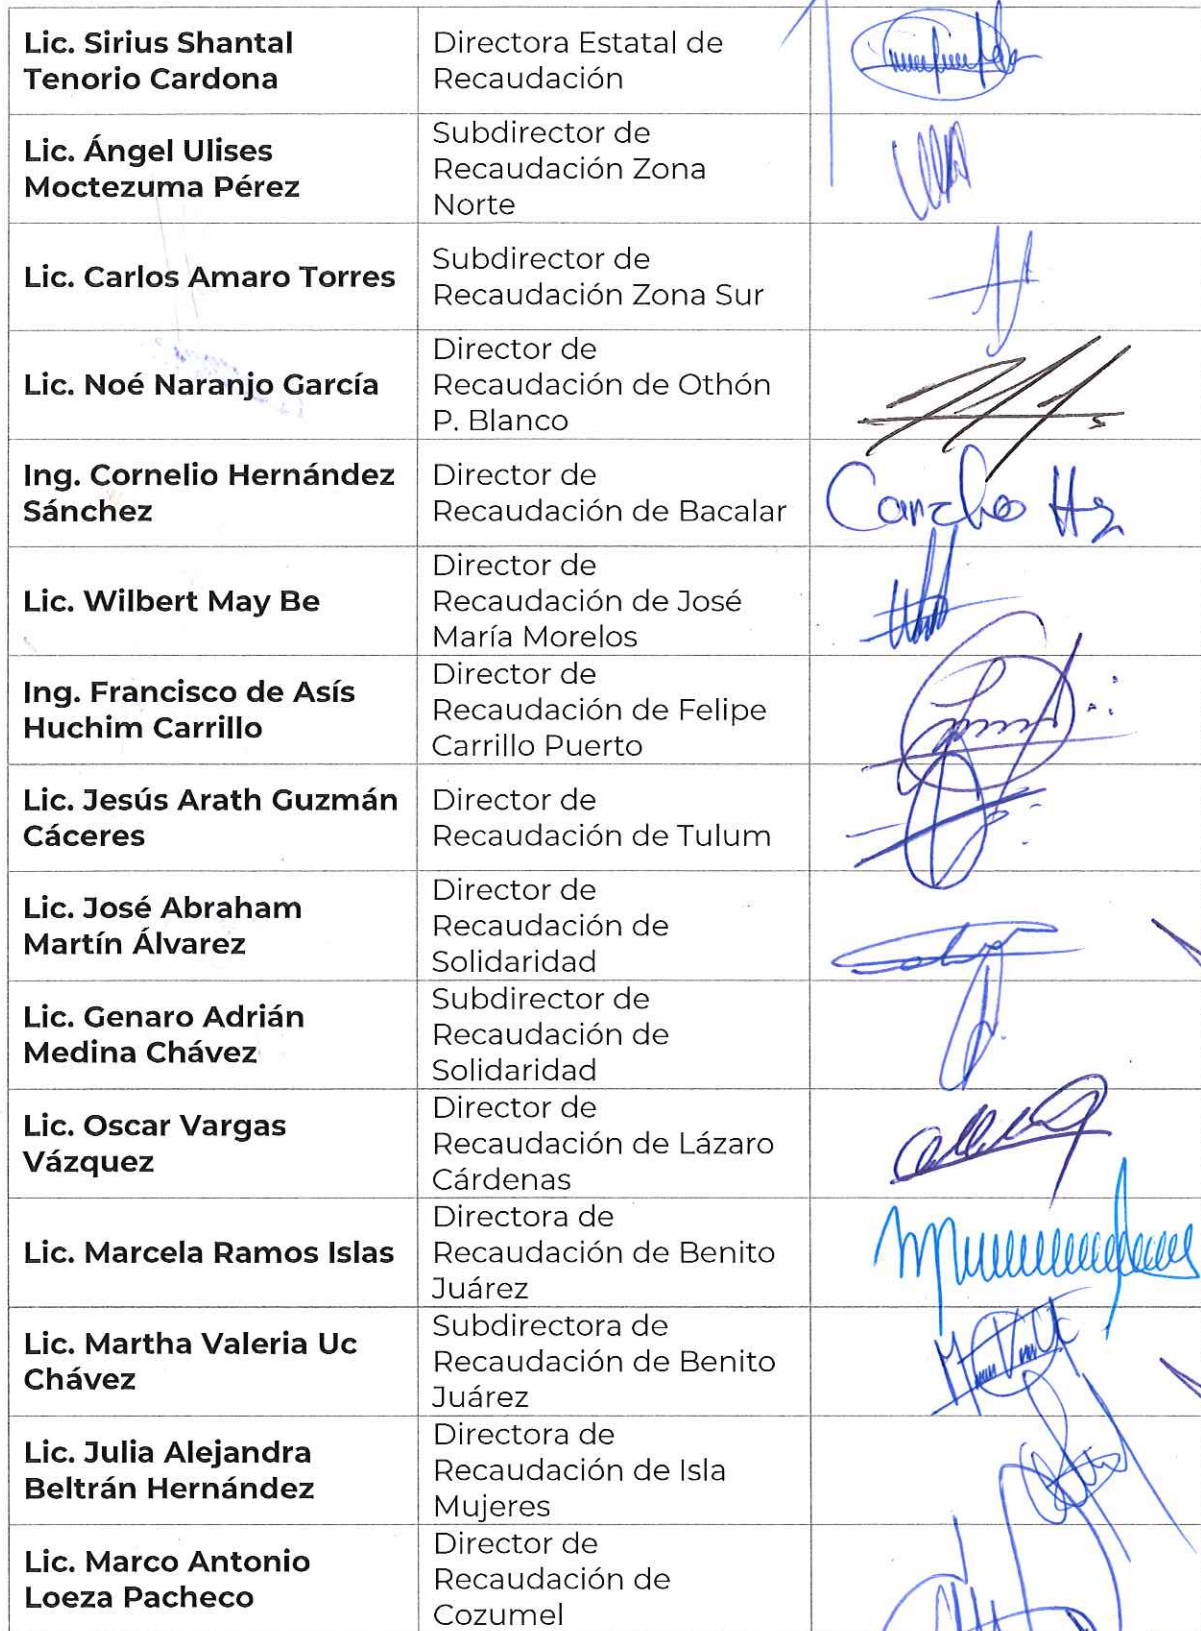 Lic. Sirius Shantal
Tenorio Cardona
Directora Estatal de
Recaudación
Lic. Ángel Ulises
Moctezuma Pérez
Subdirector de
Recaudación Zona
Norte
Lic. Carlos Amaro Torres
Subdirector de
Recaudación Zona Sur
Lic. Noé Naranjo García
Director de
Recaudación de Othón
P. Blanco
Ing. Cornelio Hernández
Sánchez
Director de
Recaudación de Bacalar
Lic. Wilbert May Be
Director de
Recaudación de José
María Morelos
Ing. Francisco de Asís
Huchim Carrillo
Director de
Recaudación de Felipe
Carrillo Puerto
Lic. Jesús Arath Guzmán
Cáceres
Director de
Recaudación de Tulum
Lic. José Abraham
Martín Álvarez
Director de
Recaudación de
Solidaridad
Lic. Genaro Adrián
Medina Chávez
Subdirector de
Recaudación de
Solidaridad
Lic. Oscar Vargas
Vázquez
Director de
Recaudación de Lázaro
Cárdenas
Lic. Marcela Ramos Islas
Directora de
Recaudación de Benito
Juárez
Lic. Martha Valeria Uc
Chávez
Subdirectora de
Recaudación de Benito
Juárez
Lic. Julia Alejandra
Beltrán Hernández
Directora de
Recaudación de Isla
Mujeres
Lic. Marco Antonio
Loeza Pacheco
Director de
Recaudación de
Cozumel